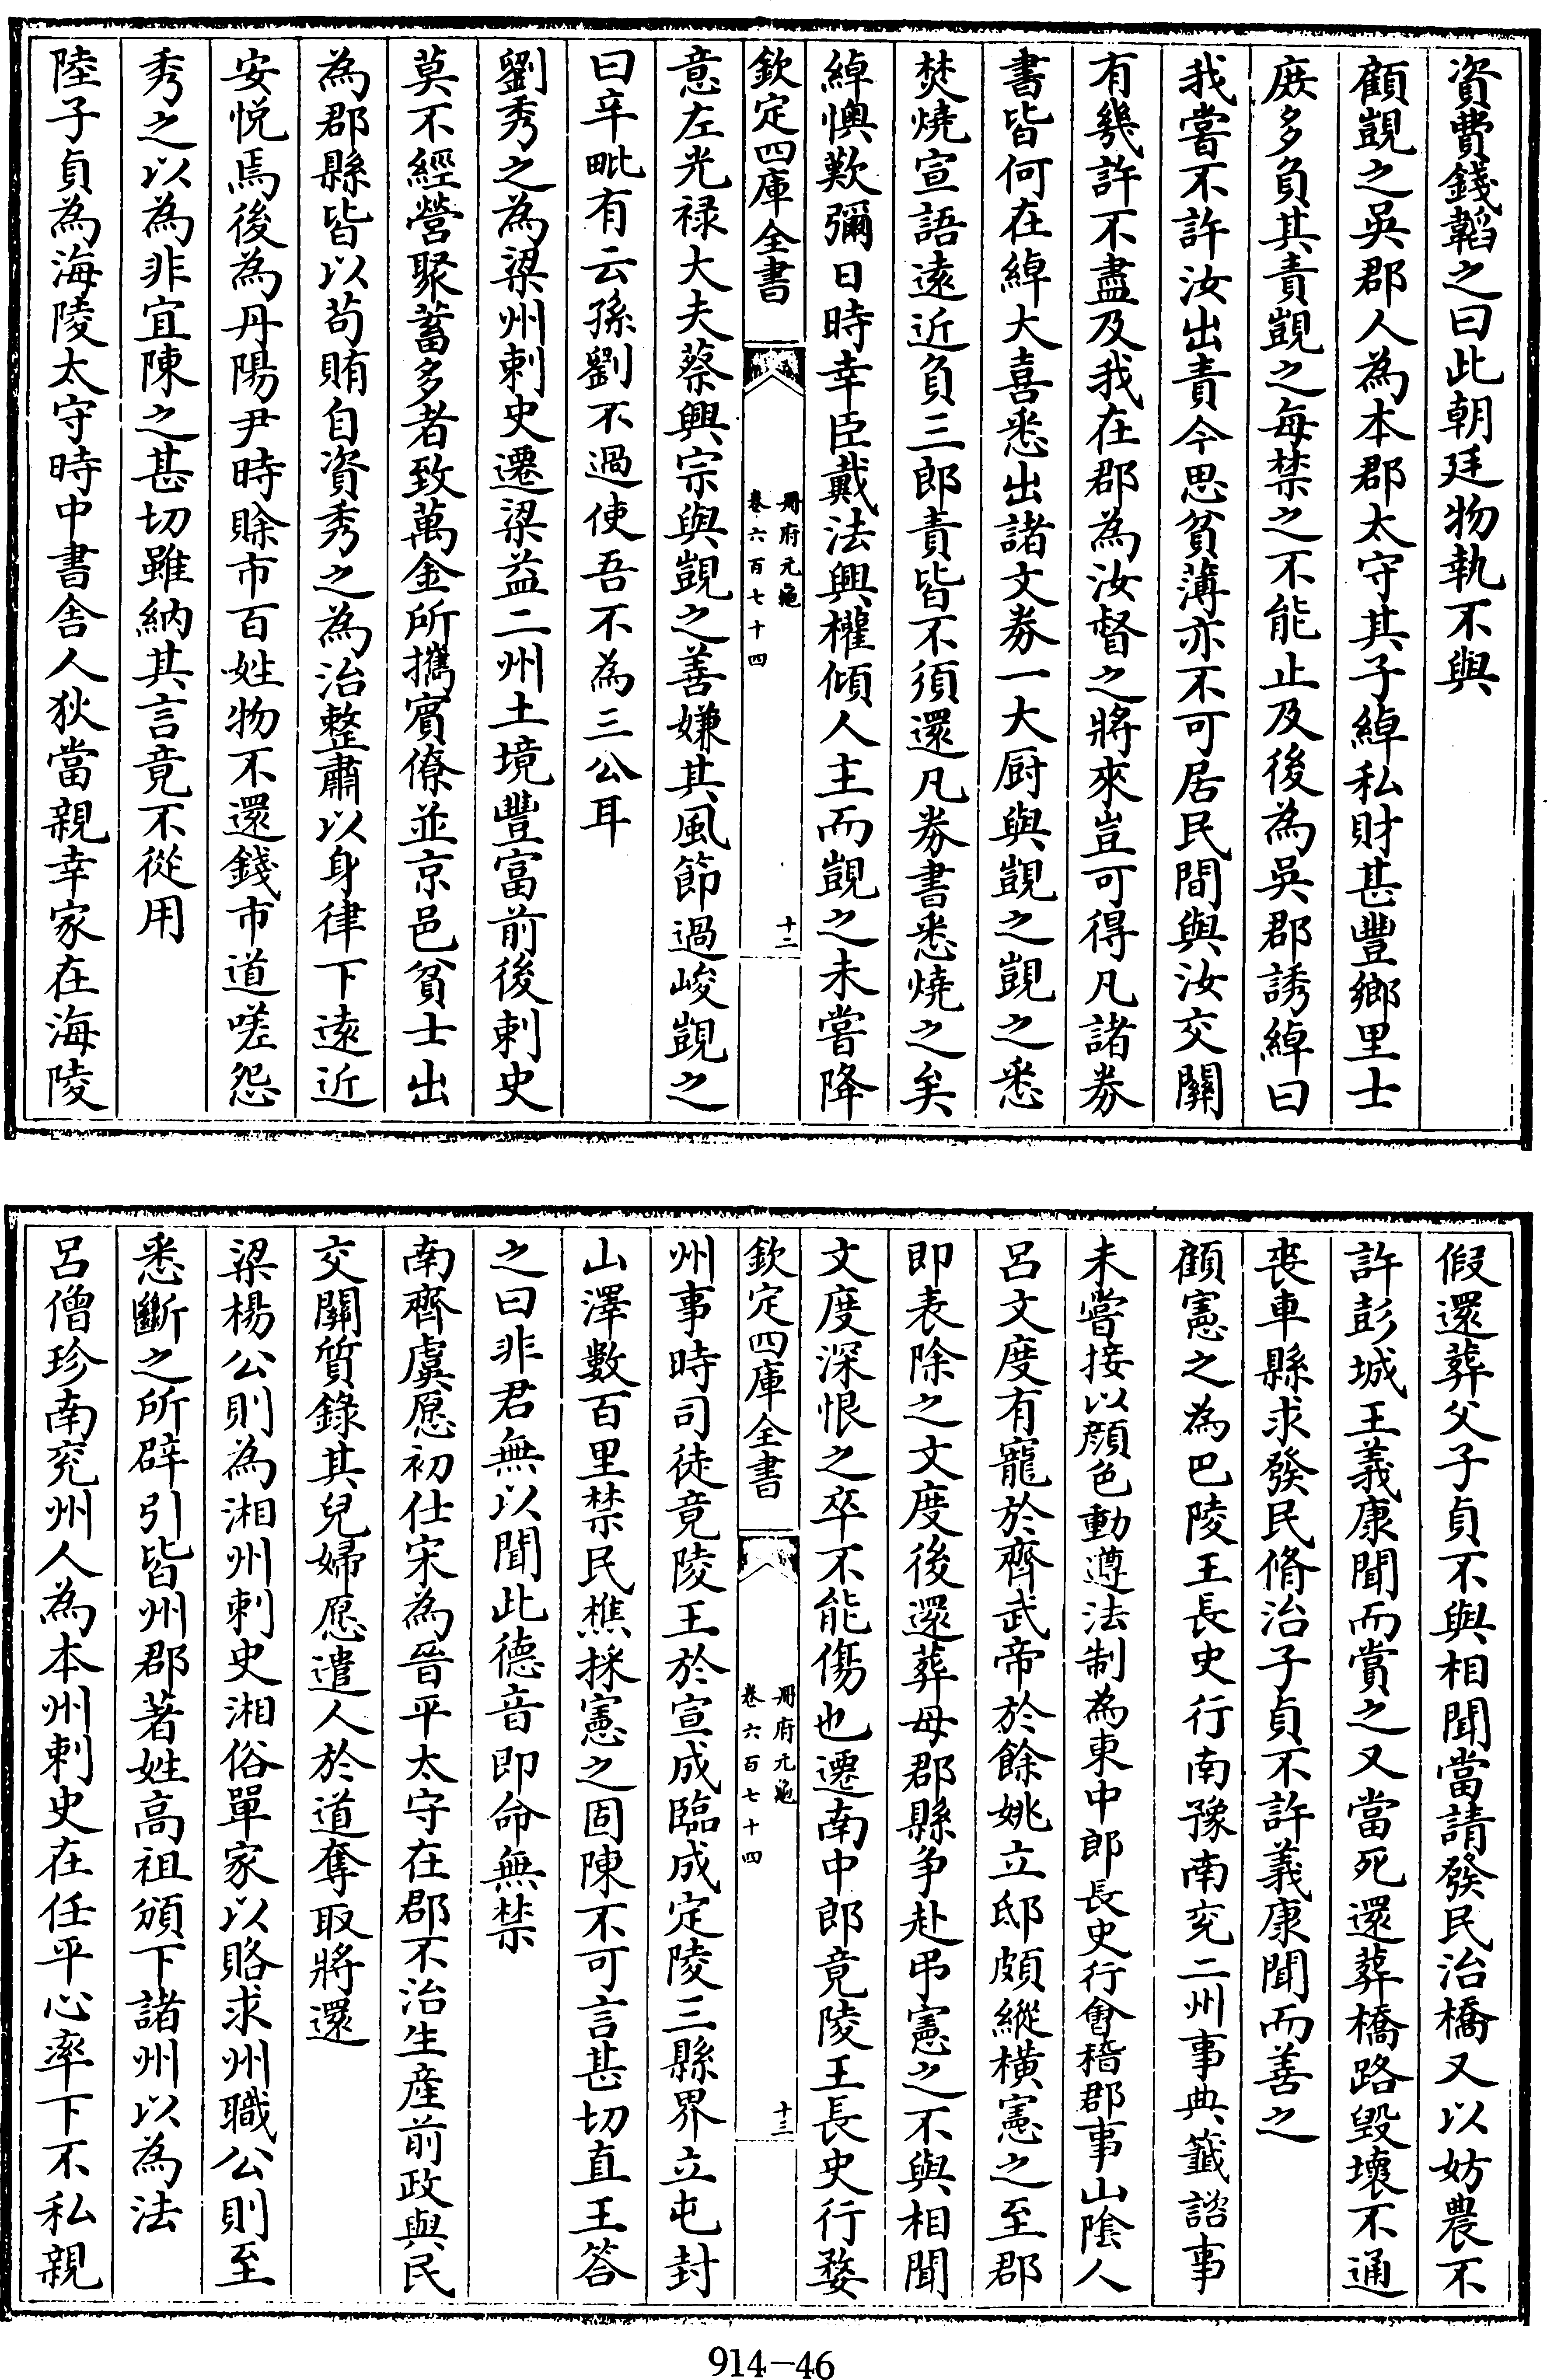 資費錢韜之曰此朝廷物執不與
顧覬之吳郡人為本郡太守其子綽私財甚豐鄉里士
庶多負其責覬之每禁之不能止及後為吳郡誘綽曰
我嘗不許汝出責今思貧薄亦不可居民間與汝交關
有幾許不盡及我在郡為汝督之將來豈可得凡諸券
書皆何在綽大喜悉出諸文券一大厨與覬之覬之悉
焚燒宣語遠近負三郎責皆不須還凡券書悉燒之矣
綽懊歎彌日時幸臣戴法興權傾人主而覬之未嘗降
欽定四庫全書
冊府元龜
卷六百七十四
十二
意左光禄大夫蔡興宗與覬之善嫌其風節過峻覬之
曰辛毗有云孫劉不過使吾不為三公耳
劉秀之為梁州刺史遷梁益二州土境豐富前後刺史
莫不經營聚蓄多者致萬金所攜賓僚並京邑貧士出
為郡縣皆以苟賄自資秀之為治整肅以身律下遠近
安悦焉後為丹陽尹時賒市百姓物不還錢市道嗟怨
秀之以為非宜陳之甚切雖納其言竟不從用
陸子貞為海陵太守時中書舍人狄當親幸家在海陵
假還葬父子貞不與相聞當請發民治橋又以妨農不
許彭城王義康聞而賞之又當死還葬橋路毁壞不通
喪車縣求發民脩治子貞不許義康聞而善之
顧憲之為巴陵王長史行南豫南兖二州事典籤諮事
未嘗接以顔色動遵法制為東中郎長史行會稽郡事山陰人
呂文度有寵於齊武帝於餘姚立邸頗縱橫憲之至郡
即表除之文度後還葬母郡縣争赴弔憲之不與相聞
文度深恨之卒不能傷也遷南中郎竟陵王長史行婺
欽定四庫全書
冊府元龜
卷六百七十四
十三
州事時司徒竟陵王於宣成臨成定陵三縣界立屯封
山澤數百里禁民樵採憲之固陳不可言甚切直王答
之曰非君無以聞此德音即命無禁
南齊虞愿初仕宋為晉平太守在郡不治生産前政與民
交關質錄其兒婦愿遣人於道奪取將還
梁楊公則為湘州刺史湘俗單家以賂求州職公則至
悉斷之所辟引皆州郡著姓高祖頒下諸州以為法
呂僧珍南兖州人為本州刺史在任平心率下不私親
914-46